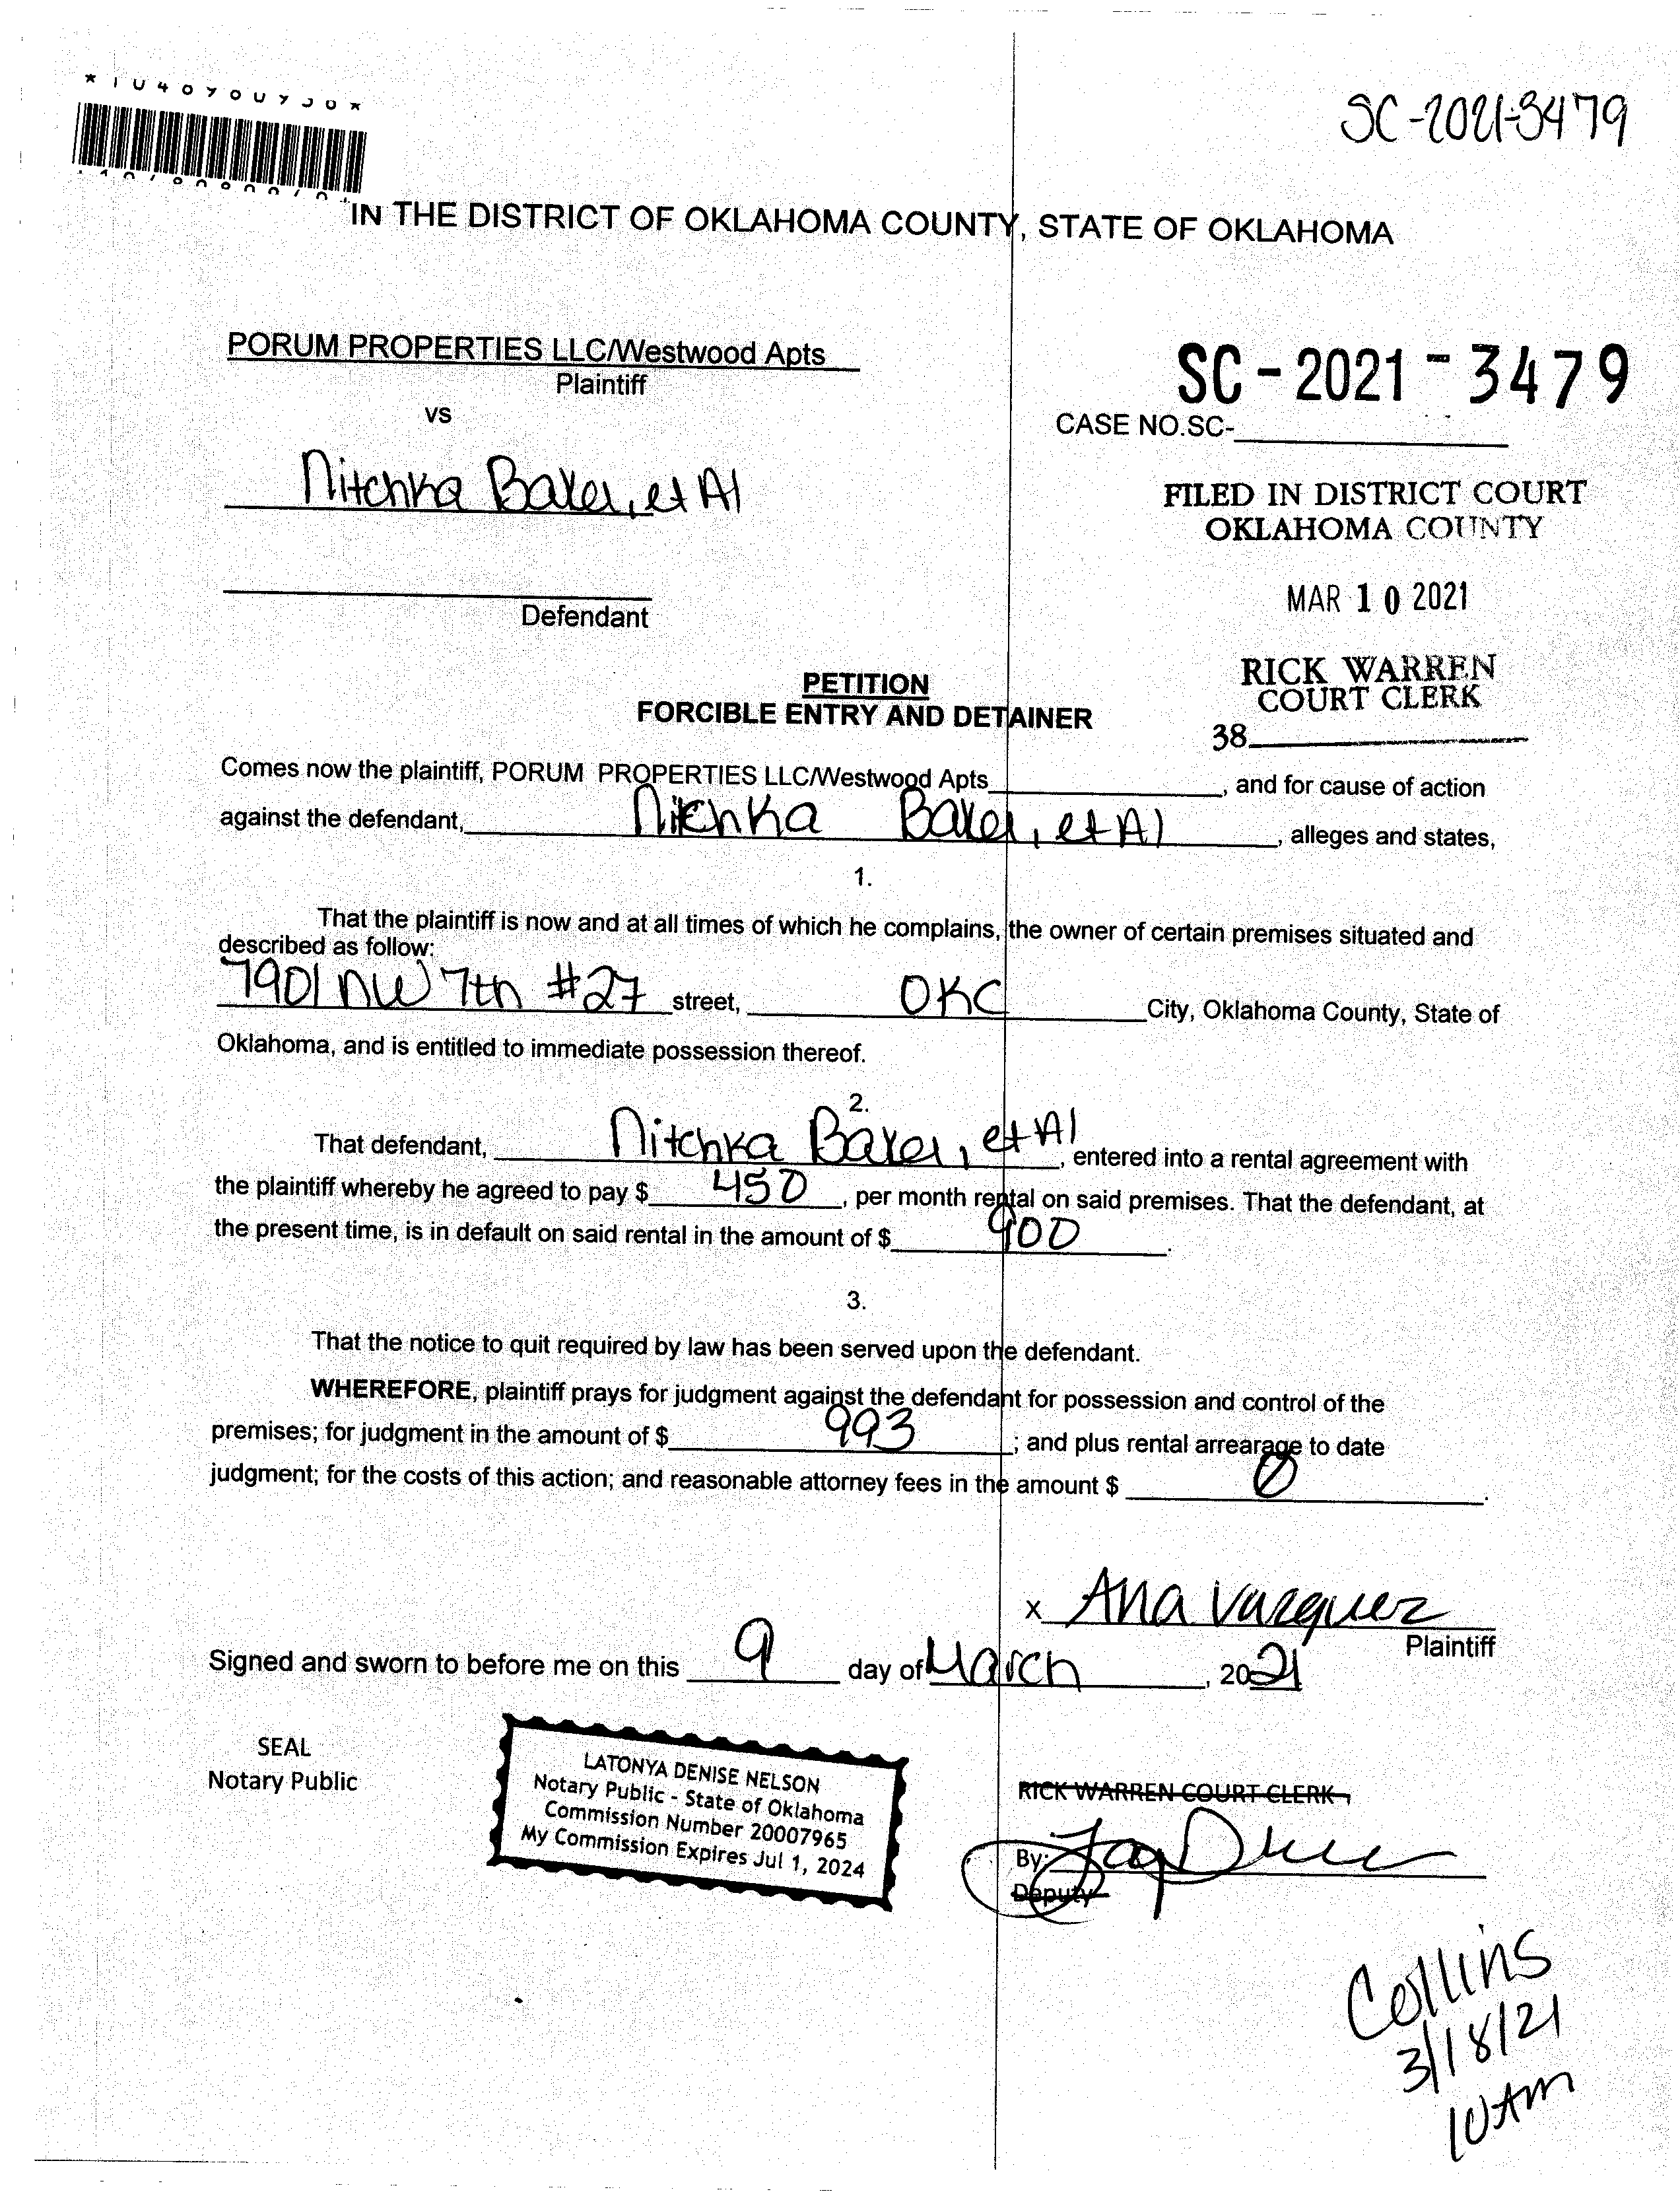 SC-2021-3479
IN THE DISTRICT OF OKLAHOMA COUNTY, STATE OF OKLAHOMA
PORUM PROPERTIES LLC/Westwood Apts
Plaintiff
vs
SC - 2021 - 3479
CASE NO.SC-
Nitchka Baker, et Al
FILED IN DISTRICT COURT
OKLAHOMA COUNTY
Defendant
MAR 10 2021
PETITION
FORCIBLE ENTRY AND DETAINER
RICK WARREN
COURT CLERK
38
Comes now the plaintiff, PORUM PROPERTIES LLC/Westwood Apts , and for cause of action
against the defendant, Nitchka Baker, et Al , alleges and states,
1.
That the plaintiff is now and at all times of which he complains, the owner of certain premises situated and
described as follow:
7901 NW 7th #27 street, OKC City, Oklahoma County, State of
Oklahoma, and is entitled to immediate possession thereof.
2.
That defendant, Nitchka Baker, et Al , entered into a rental agreement with
the plaintiff whereby he agreed to pay $ 450 , per month rental on said premises. That the defendant, at
the present time, is in default on said rental in the amount of $ 900 .
3.
That the notice to quit required by law has been served upon the defendant.
WHEREFORE, plaintiff prays for judgment against the defendant for possession and control of the
premises; for judgment in the amount of $ 993 ; and plus rental arrearage to date
judgment; for the costs of this action; and reasonable attorney fees in the amount $ 0 .
x Ana Vazquez
Plaintiff
Signed and sworn to before me on this 9 day of March , 2021
SEAL
Notary Public
LATONYA DENISE NELSON
Notary Public - State of Oklahoma
Commission Number 20007965
My Commission Expires Jul 1, 2024
RICK WARREN COURT CLERK
By:
Deputy
Collins
3/18/21
10AM